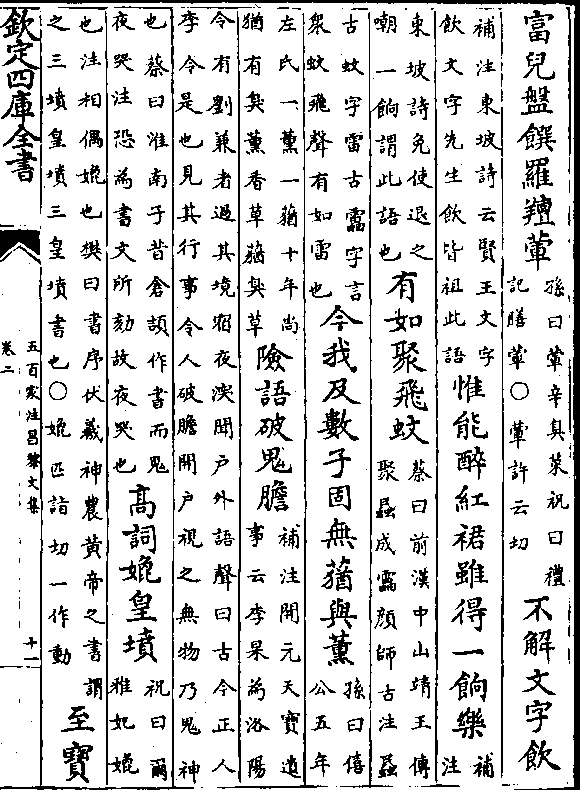 富兒盤饌羅羶葷
孫曰葷辛臭菜祝曰禮
記膳葷〇葷許云切
不解文字飲
補注東坡詩云賢王文字
飲文字先生飲皆祖此語
惟能醉紅裙雖得一餉樂
補
注
東坡詩免使退之
嘲一餉謂此語也
有如聚飛蚊
蔡曰前漢中山靖王傳
聚蟁成靁顔師古注蟁
古蚊字雷古靁字言
衆蚊飛聲有如雷也
今我及數子固無蕕與薰
孫曰僖
公五年
左氏一薰一蕕十年尚
猶有臭薰香草蕕臭草
險語破鬼膽
補注開元天寶遺
事云李杲為洛陽
令有劉兼者過其境宿夜深聞戶外語聲曰古今正人
李令是也見其行事令人破膽開戶視之無物乃鬼神
也蔡曰淮南子昔倉頡作書而鬼
夜哭注恐為書文所劾故夜哭也
高詞媲皇墳
祝曰爾
雅妃媲
也注相偶媲也樊曰書序伏羲神農黃帝之書謂
之三墳皇墳三皇墳書也〇媲匹詣切一作動
至寶
欽定四庫全書
五百家注昌黎文集
卷二
十一